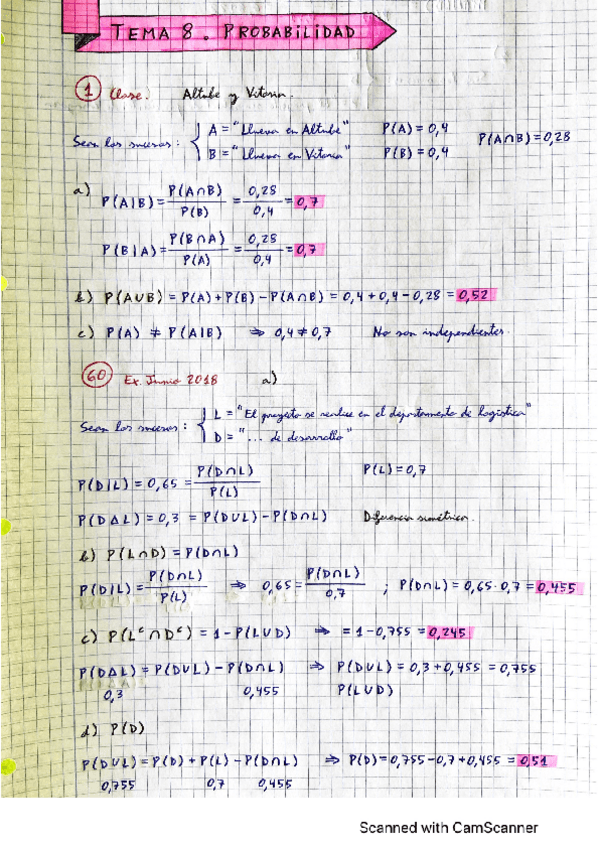 TEMA 8. PROBABILIDAD
1 Clase. Altube y Vitoria.
Sean los sucesos: { A = "Llueva en Altube" P(A) = 0,4 P(A∩B) = 0,28
B = "Llueva en Vitoria" P(B) = 0,4
a) P(A|B) = P(A∩B) / P(B) = 0,28 / 0,4 = 0,7
P(B|A) = P(B∩A) / P(A) = 0,28 / 0,4 = 0,7
b) P(A∪B) = P(A) + P(B) - P(A∩B) = 0,4 + 0,4 - 0,28 = 0,52
c) P(A) ≠ P(A|B) ⇒ 0,4 ≠ 0,7 No son independientes.
60 Ex. Junio 2018 a)
Sean los sucesos: { L = "El proyecto se realice en el departamento de logística"
D = "... de desarrollo"
P(D|L) = 0,65 = P(D∩L) / P(L) P(L) = 0,7
P(D∆L) = 0,3 = P(D∪L) - P(D∩L) Diferencia simétrica.
b) P(L∩D) = P(D∩L)
P(D|L) = P(D∩L) / P(L) ⇒ 0,65 = P(D∩L) / 0,7 ; P(D∩L) = 0,65·0,7 = 0,455
c) P(Lᶜ∩Dᶜ) = 1 - P(L∪D) ⇒ = 1 - 0,755 = 0,245
P(D∆L) = P(D∪L) - P(D∩L) ⇒ P(D∪L) = 0,3 + 0,455 = 0,755
0,3 0,455 P(L∪D)
d) P(D)
P(D∪L) = P(D) + P(L) - P(D∩L) ⇒ P(D) = 0,755 - 0,7 + 0,455 = 0,51
0,755 0,7 0,455
Scanned with CamScanner